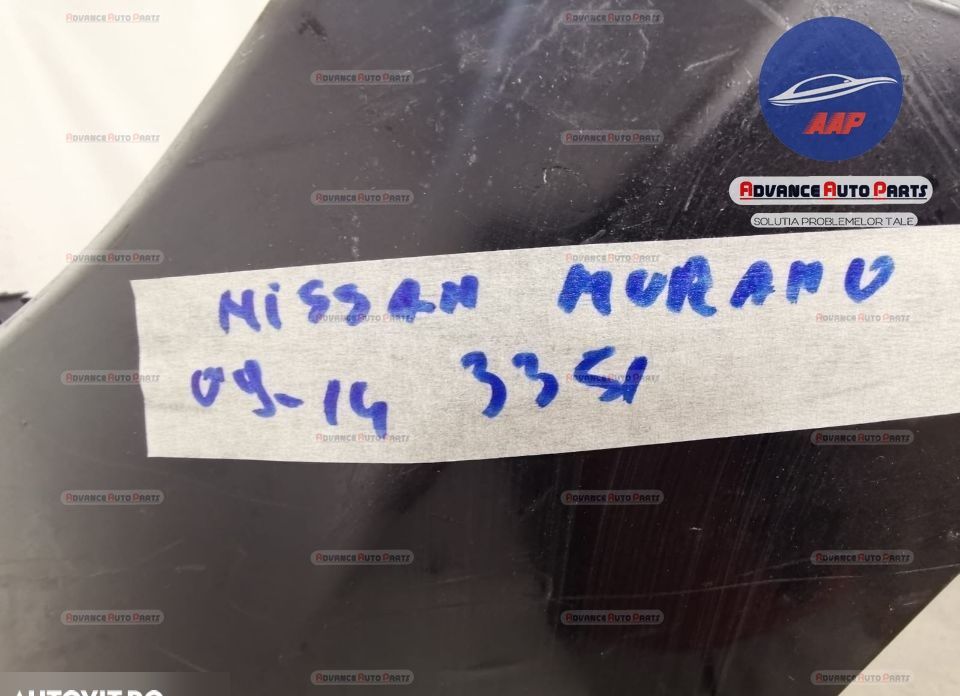 AAP
ADVANCE AUTO PARTS
SOLUTIA PROBLEMELOR TALE
NISSAN MURANO
09-14 3351
AUTOVIT.RO